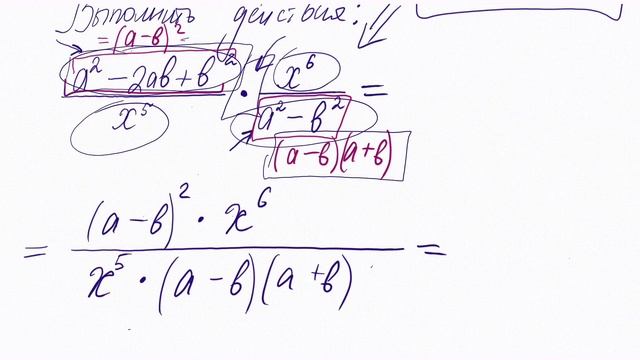 Выполнить действия:
= (a-в)²
a² - 2aв + в² / x⁵ · x⁶ / a² - в² =
(a-в)(a+в)
= (a-в)² · x⁶ / x⁵ · (a-в)(a+в) =